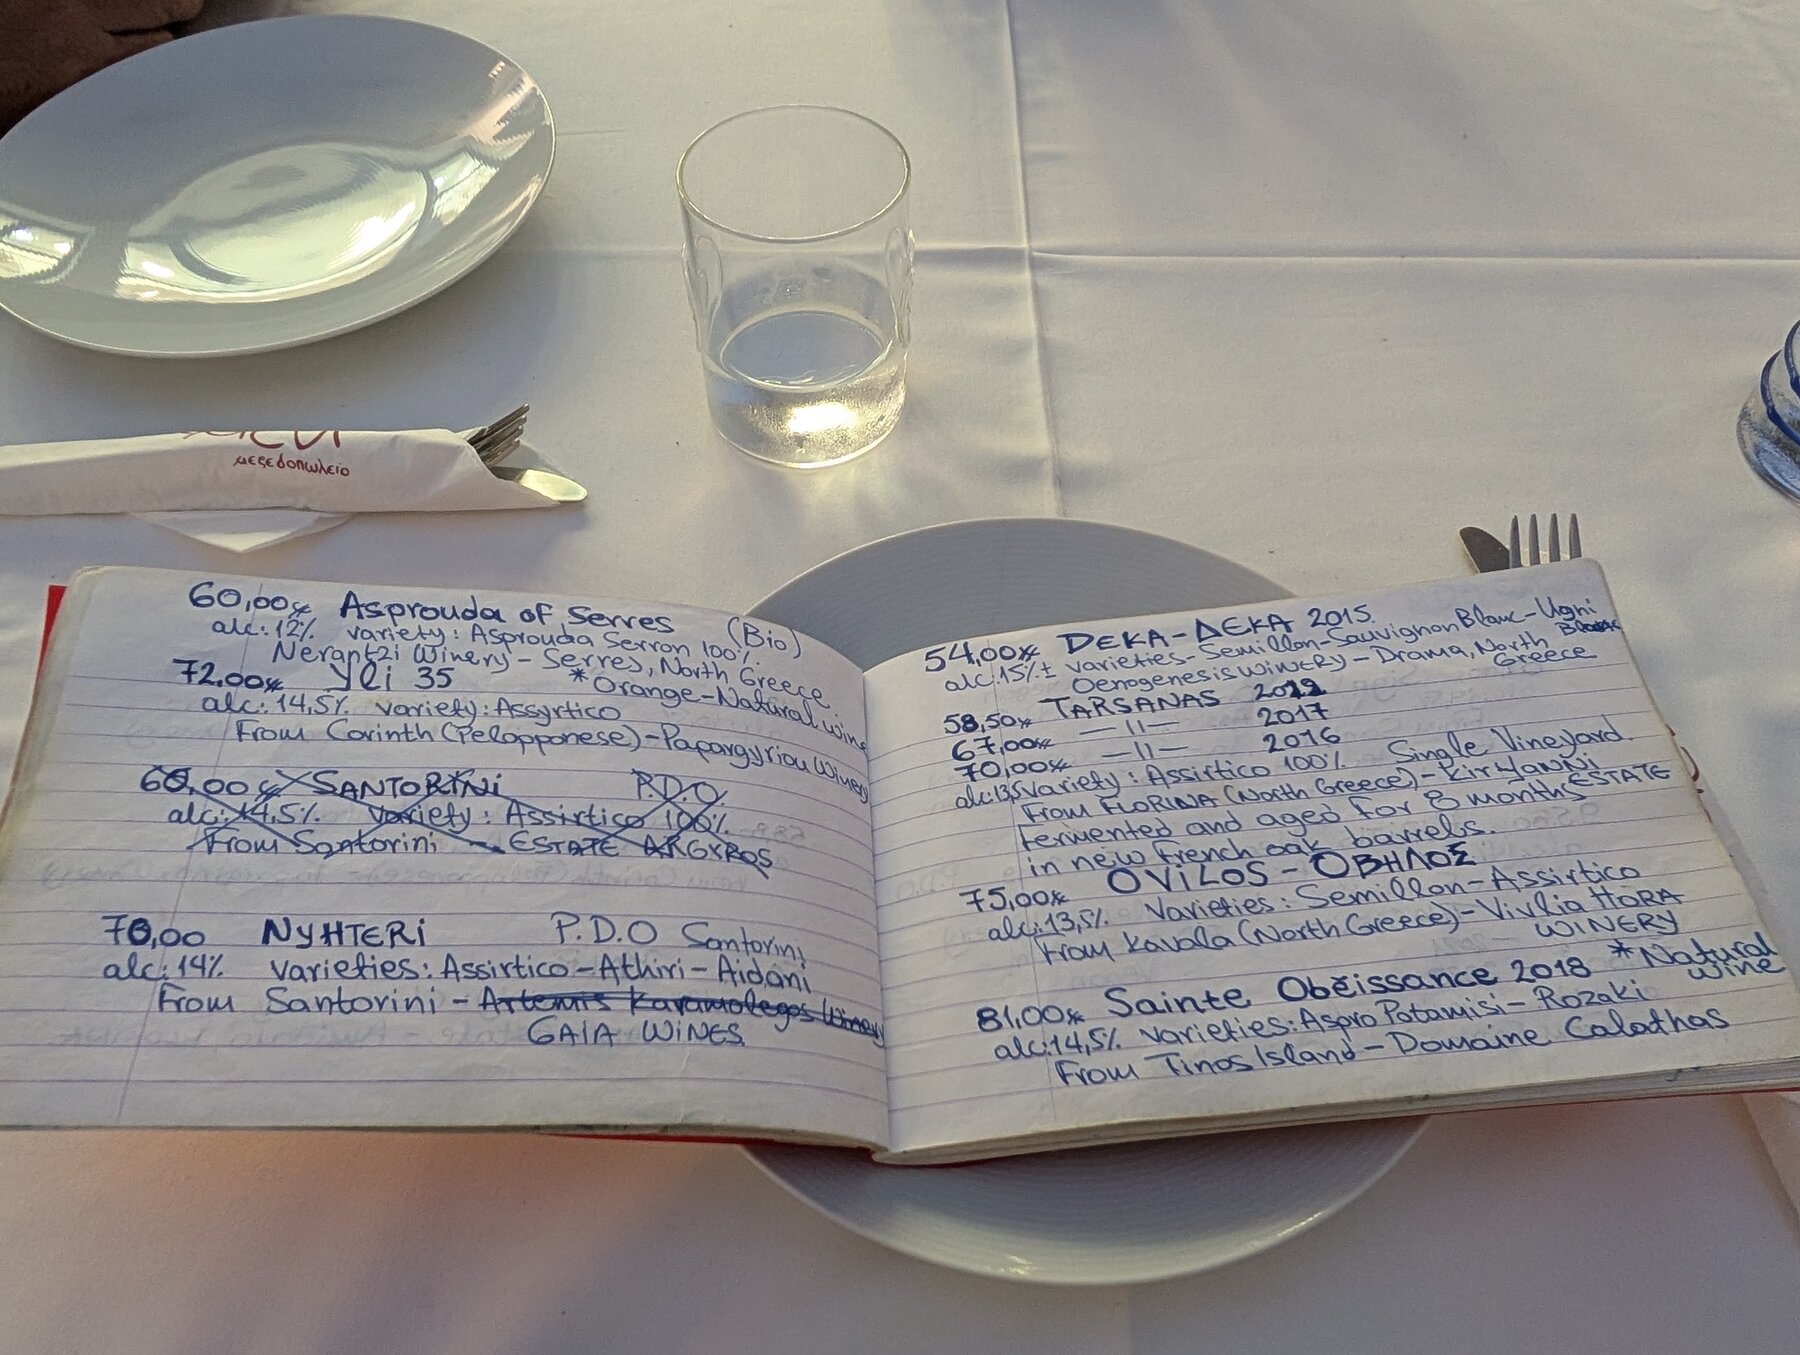 μεζεδοπωλείο
60,00€ Asprouda of Serres (Bio)
alc: 12% variety: Asprouda Serron 100%
Nerantzi Winery - Serres, North Greece
72,00€ Yli 35 *Orange-Natural wine
alc: 14,5% variety: Assyrtico
From Corinth (Peloponnese) - Papargyriou Winery
60,00€ SANTORiNi P.D.O.
alc: 14,5% Variety: Assirtico 100%
From Santorini - ESTATE ARGYROS
70,00 NyHTERi P.D.O Santorini
alc: 14% varieties: Assirtico - Athiri - Aidani
From Santorini - Artemis Karamolegos Winery
GAIA WiNES
54,00€ DEKA - ΔEKA 2015.
alc: 15%± varieties - Semillon - Sauvignon Blanc - Ugni
Oenogenesis WiNERY - Drama, North Greece
58,50€ TARSANAS
67,00€ —11— 2017
70,00€ —11— 2016
alc: 13,5 Variety: Assirtico 100% Single Vineyard.
From FLORINA (North Greece) - KirYANNi ESTATE
Fermented and aged for 8 months
in new French oak barrels.
75,00€ OViLOS - ΟΒΗΛΟΣ
alc: 13,5% Varieties: Semillon - Assirtico
From Kavala (North Greece) - Vivlia HORA
WINERY
81,00€ Sainte Obëissance 2018 *Natural wine
alc: 14,5% Varieties: Aspro Potamisi - Rozaki
From Tinos Island - Domaine Calathas